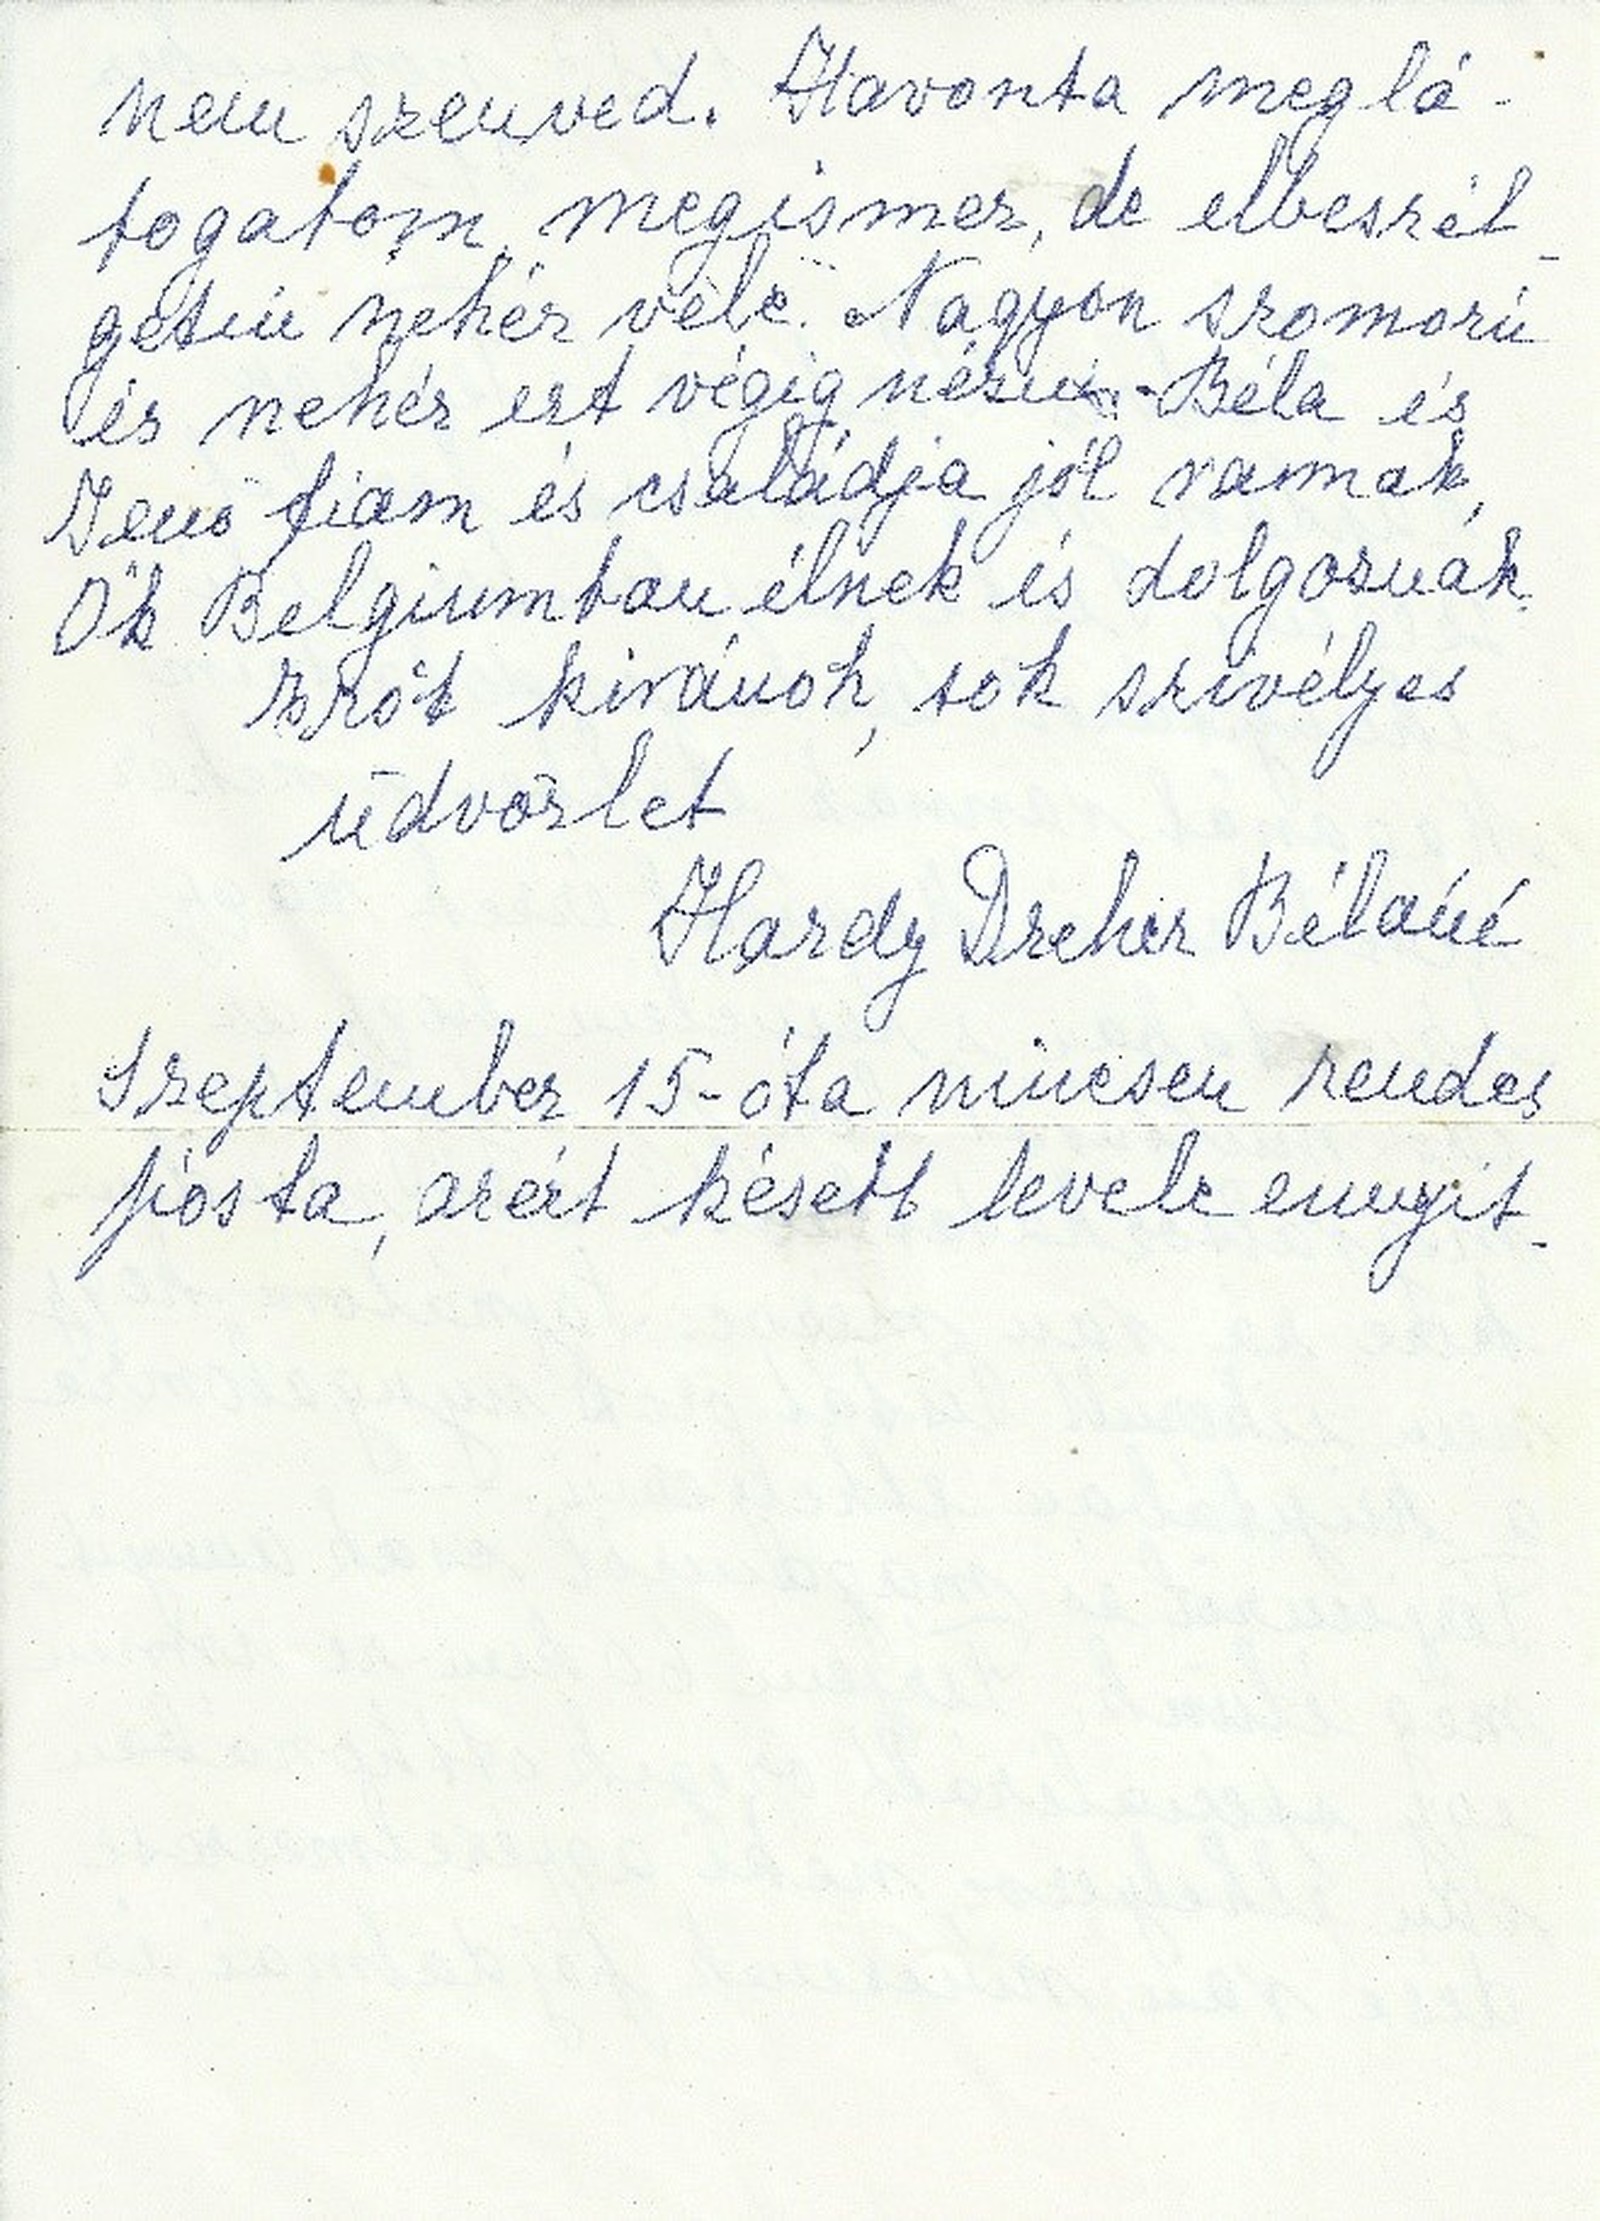 nem szenved. Havonta meglá-
togatom, megismer, de elbeszél-
getni nehéz vele. Nagyon szomorú
és nehéz ezt végig nézni. Béla és
Jenő fiam és családja jól vannak,
Ők Belgiumban élnek és dolgoznak.
kívánok, sok szívélyes
üdvözlet
Hardy Dreher Béláné
Szeptember 15-óta nincsen rendes
pósta, azért késett levele ennyit.